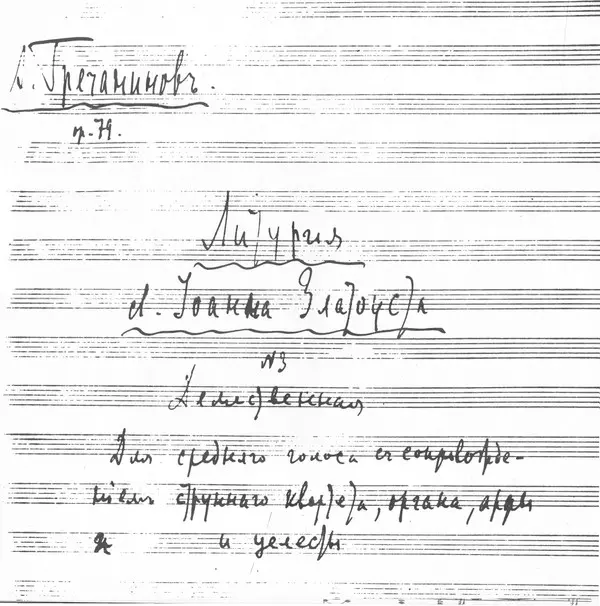 А. Гречаниновъ.
ор. 79.
Литургия
св. Iоанна Златоуста
N 3
Демественная
Для средняго голоса съ сопровожде-
нiемъ струннаго квартета, органа, арфы
и целесты